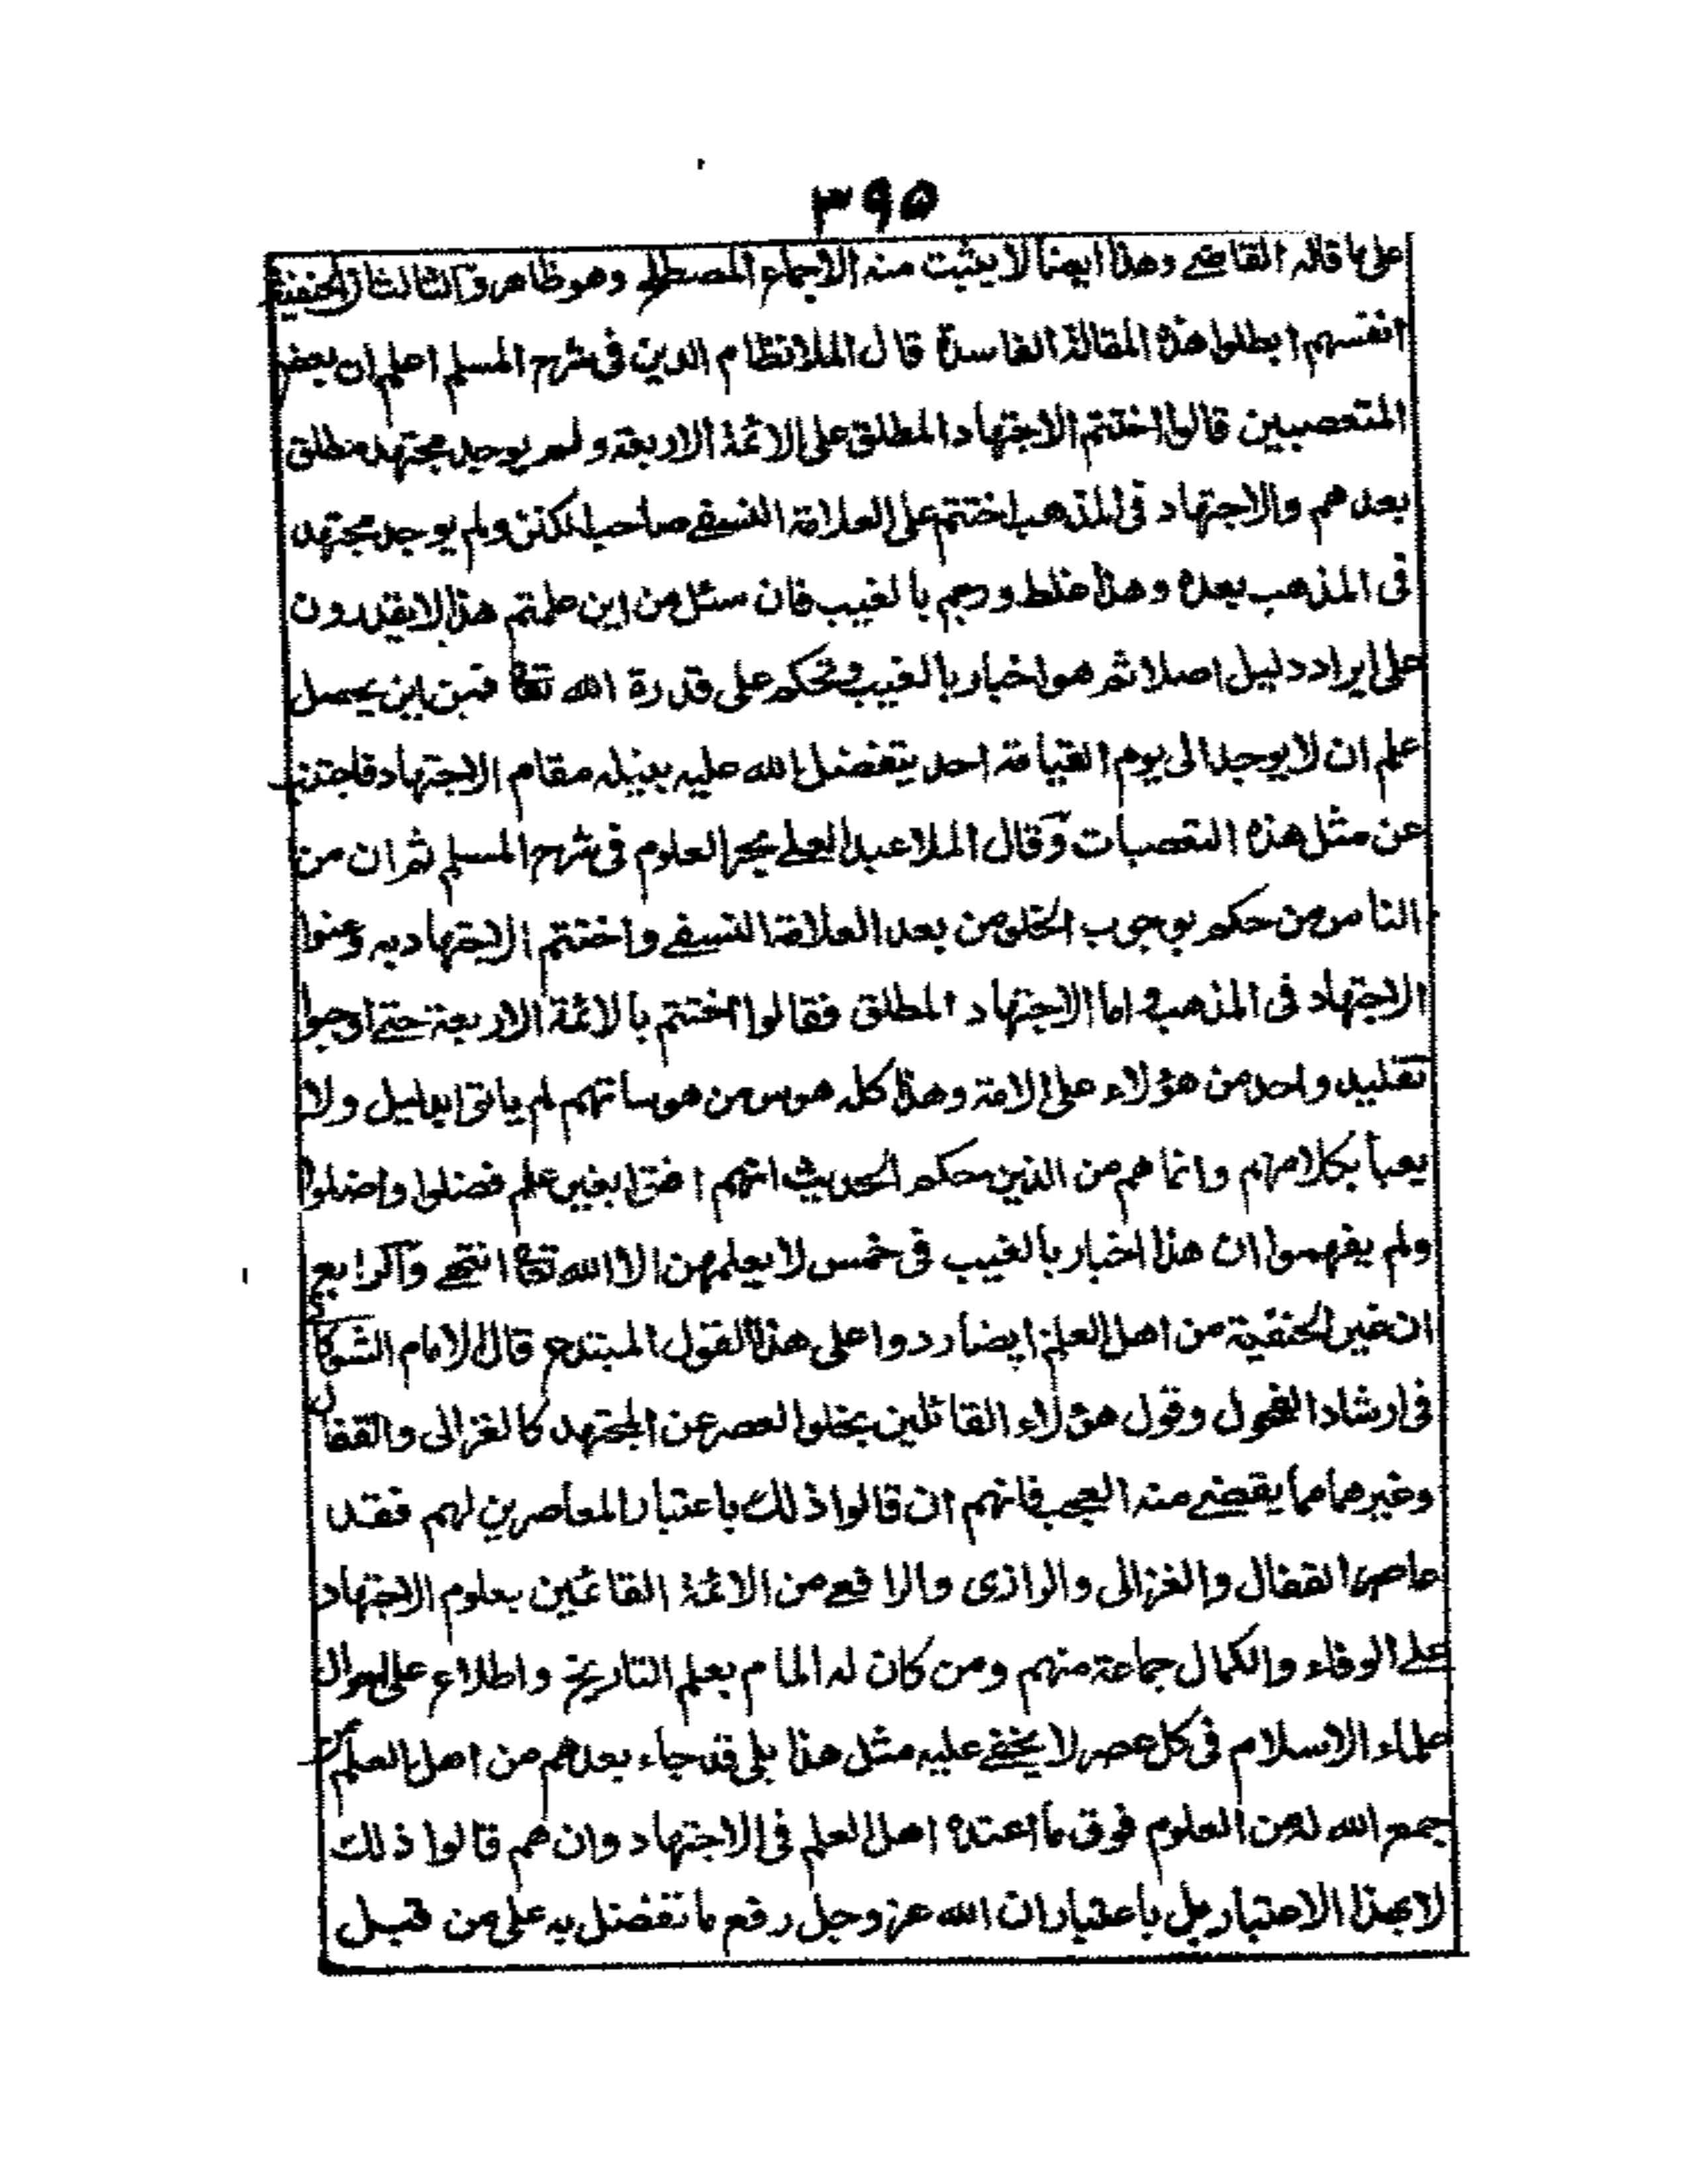 ٣٩٥
على ما قاله القاضے وهذا ايضا لا يثبت منه الاجماع المصطلح وهو ظاهر وآلثالث ان الحنفية
انفسهم ابطلوا هذه المقالة الفاسدة قال الملا نظام الدين فى شرح المسلم اعلم ان بعض
المتعصبين قالوا اختتم الاجتهاد المطلق على الائمة الاربعة ولم يوجد مجتهد مطلق
بعدهم والاجتهاد فى المذهب اختتم على العلامة النسفے صاحب الكنز ولم يوجد مجتهد
فى المذهب بعده وهذا غلط ورجم بالغيب فان سئل من اين علمتم هذا لا يقدرون
على ايراد دليل اصلا ثم هو اخبار بالغيب وتحكم على قدرة الله تعا فمن اين يحصل
علم ان لا يوجد الى يوم القيامة احد يتفضل الله عليه بنيله مقام الاجتهاد فاجتنب
عن مثل هذه التعصبات وآقال الملا عبد العلے بحر العلوم فى شرح المسلم ثم ان من
الناس من حكم بوجوب الخلو من بعد العلامة النسفے واختتم الاجتهاد به وعنوا
الاجتهاد فى المذهب واما الاجتهاد المطلق فقالوا اختتم بالائمة الاربعة حتے اوجبوا
تقليد واحد من هؤلاء على الامة وهذا كله هوس من هوساتهم لم ياتوا بدليل ولا
يعبأ بكلامهم وانما هم من الذين حكم الحديث انهم افتوا بغير علم فضلوا واضلوا
ولم يفهموا ان هذا اخبار بالغيب فى خمس لا يعلمهن الا الله تعا انتهے وآلرابع
ان غير الحنفية من اهل العلم ايضا ردوا على هذا القول المبتدع قال الامام الشوكانى
فى ارشاد الفحول وقول هؤلاء القائلين بخلو العصر عن المجتهد كالغزالى والقفال
وغيرهما مما يقضے منه العجب فانهم ان قالوا ذلك باعتبار المعاصرين لهم فقد
عاصر القفال والغزالى والرازى والرافعے من الائمة القائمين بعلوم الاجتهاد
علے الوفاء والكمال جماعة منهم ومن كان له المام بعلم التاريخ واطلاع على احوال
علماء الاسلام فى كل عصر لا يخفے عليه مثل هذا بلى قد جاء بعدهم من اهل العلم من
جمع الله له من العلوم فوق ما اعتده اهل العلم فى الاجتهاد وان هم قالوا ذلك
لا بهذا الاعتبار بل باعتبار ان الله عز وجل رفع ما تفضل به على من قبل